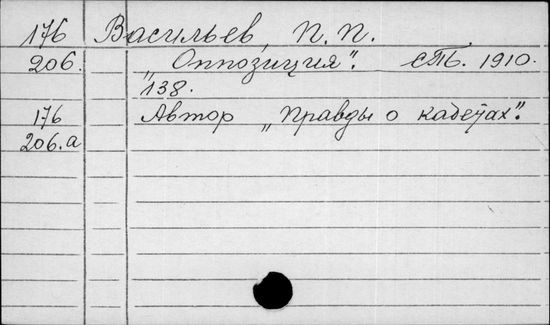 176 Васильев, П. П.
206. „Оппозиция". СПб. 1910.
138.
176 Автор „Правды о кадетах".
206.а